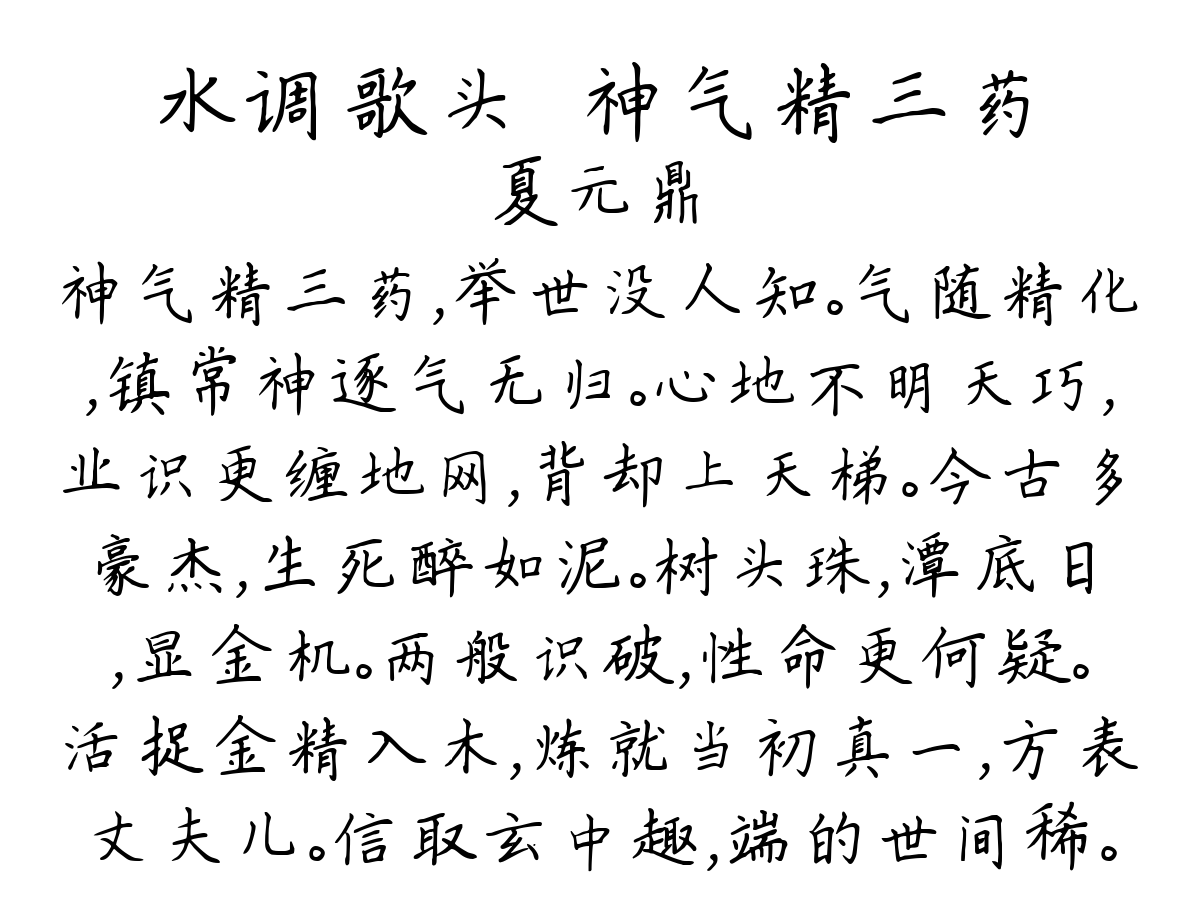 水调歌头 神气精三药
夏元鼎
神气精三药,举世没人知。气随精化
,镇常神逐气无归。心地不明天巧,
业识更缠地网,背却上天梯。今古多
豪杰,生死醉如泥。树头珠,潭底日
,显金机。两般识破,性命更何疑。
活捉金精入木,炼就当初真一,方表
丈夫儿。信取玄中趣,端的世间稀。